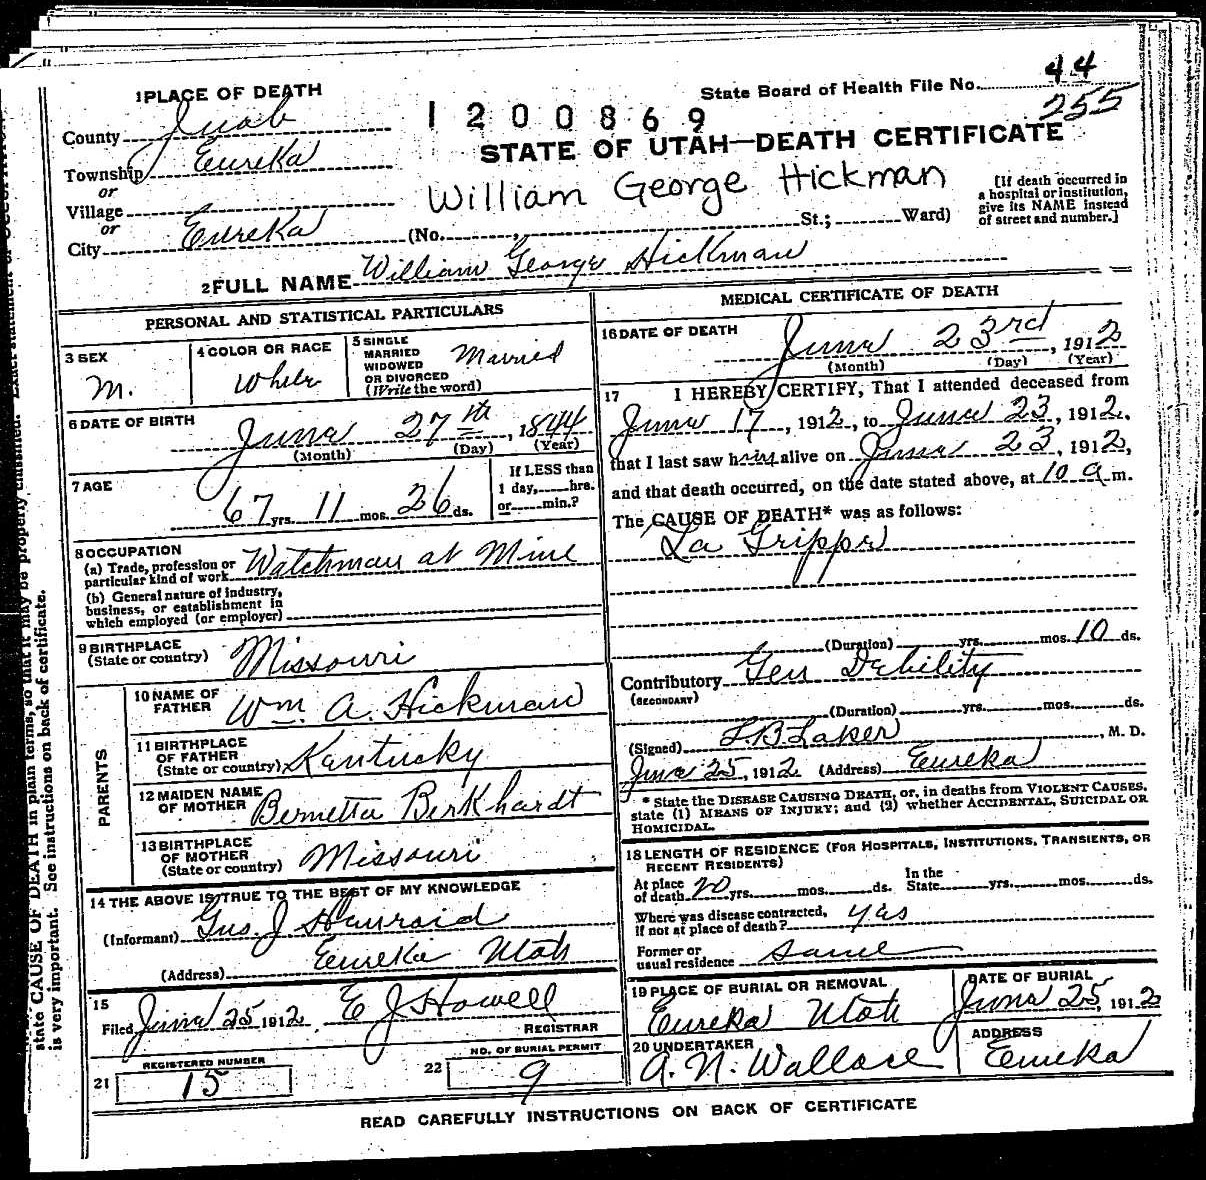 44
State Board of Health File No. 255
1 PLACE OF DEATH
1200869
County Juab
STATE OF UTAH—DEATH CERTIFICATE
Township Eureka
or
William George Hickman
[If death occurred in a hospital or institution, give its NAME instead of street and number.]
Village
or
City Eureka (No. , St.; Ward)
2 FULL NAME William George Hickman
PERSONAL AND STATISTICAL PARTICULARS
3 SEX M.
4 COLOR OR RACE White
5 SINGLE MARRIED WIDOWED OR DIVORCED (Write the word) Married
6 DATE OF BIRTH June 27th, 1844
(Month) (Day) (Year)
7 AGE
67 yrs. 11 mos. 26 ds.
If LESS than
1 day, hrs.
or min.?
8 OCCUPATION
(a) Trade, profession or particular kind of work Watchman at Mine
(b) General nature of industry, business, or establishment in which employed (or employer)
9 BIRTHPLACE
(State or country) Missouri
PARENTS
10 NAME OF FATHER Wm. A. Hickman
11 BIRTHPLACE OF FATHER (State or country) Kentucky
12 MAIDEN NAME OF MOTHER Bernetta Berkhardt
13 BIRTHPLACE OF MOTHER (State or country) Missouri
14 THE ABOVE IS TRUE TO THE BEST OF MY KNOWLEDGE
(Informant) Gus. J
(Address) Eureka Utah
15
Filed June 25 1912 E J Howell
REGISTRAR
REGISTERED NUMBER
21 15
NO. OF BURIAL PERMIT
22 9
MEDICAL CERTIFICATE OF DEATH
16 DATE OF DEATH June 23rd, 1912
(Month) (Day) (Year)
17 I HEREBY CERTIFY, That I attended deceased from
June 17, 1912, to June 23, 1912.
that I last saw him alive on June 23, 1912,
and that death occurred, on the date stated above, at 10 a m.
The CAUSE OF DEATH* was as follows:
La Grippe
(Duration) yrs. mos. 10 ds.
Contributory Gen Debility
(SECONDARY)
(Duration) yrs. mos. ds.
(Signed) L.B. Laker, M. D.
June 25, 1912 (Address) Eureka
* State the DISEASE CAUSING DEATH, or, in deaths from VIOLENT CAUSES, state (1) MEANS OF INJURY; and (2) whether ACCIDENTAL, SUICIDAL OR HOMICIDAL.
18 LENGTH OF RESIDENCE (FOR HOSPITALS, INSTITUTIONS, TRANSIENTS, OR RECENT RESIDENTS)
At place of death 20 yrs. mos. ds. In the State yrs. mos. ds.
Where was disease contracted, if not at place of death? yas
Former or usual residence same
19 PLACE OF BURIAL OR REMOVAL Eureka Utah
DATE OF BURIAL June 25, 1912
20 UNDERTAKER A. N. Wallace
ADDRESS Eureka
READ CAREFULLY INSTRUCTIONS ON BACK OF CERTIFICATE
state CAUSE OF DEATH in plain terms, so that it may be properly classified.
is very important. See instructions on back of certificate.